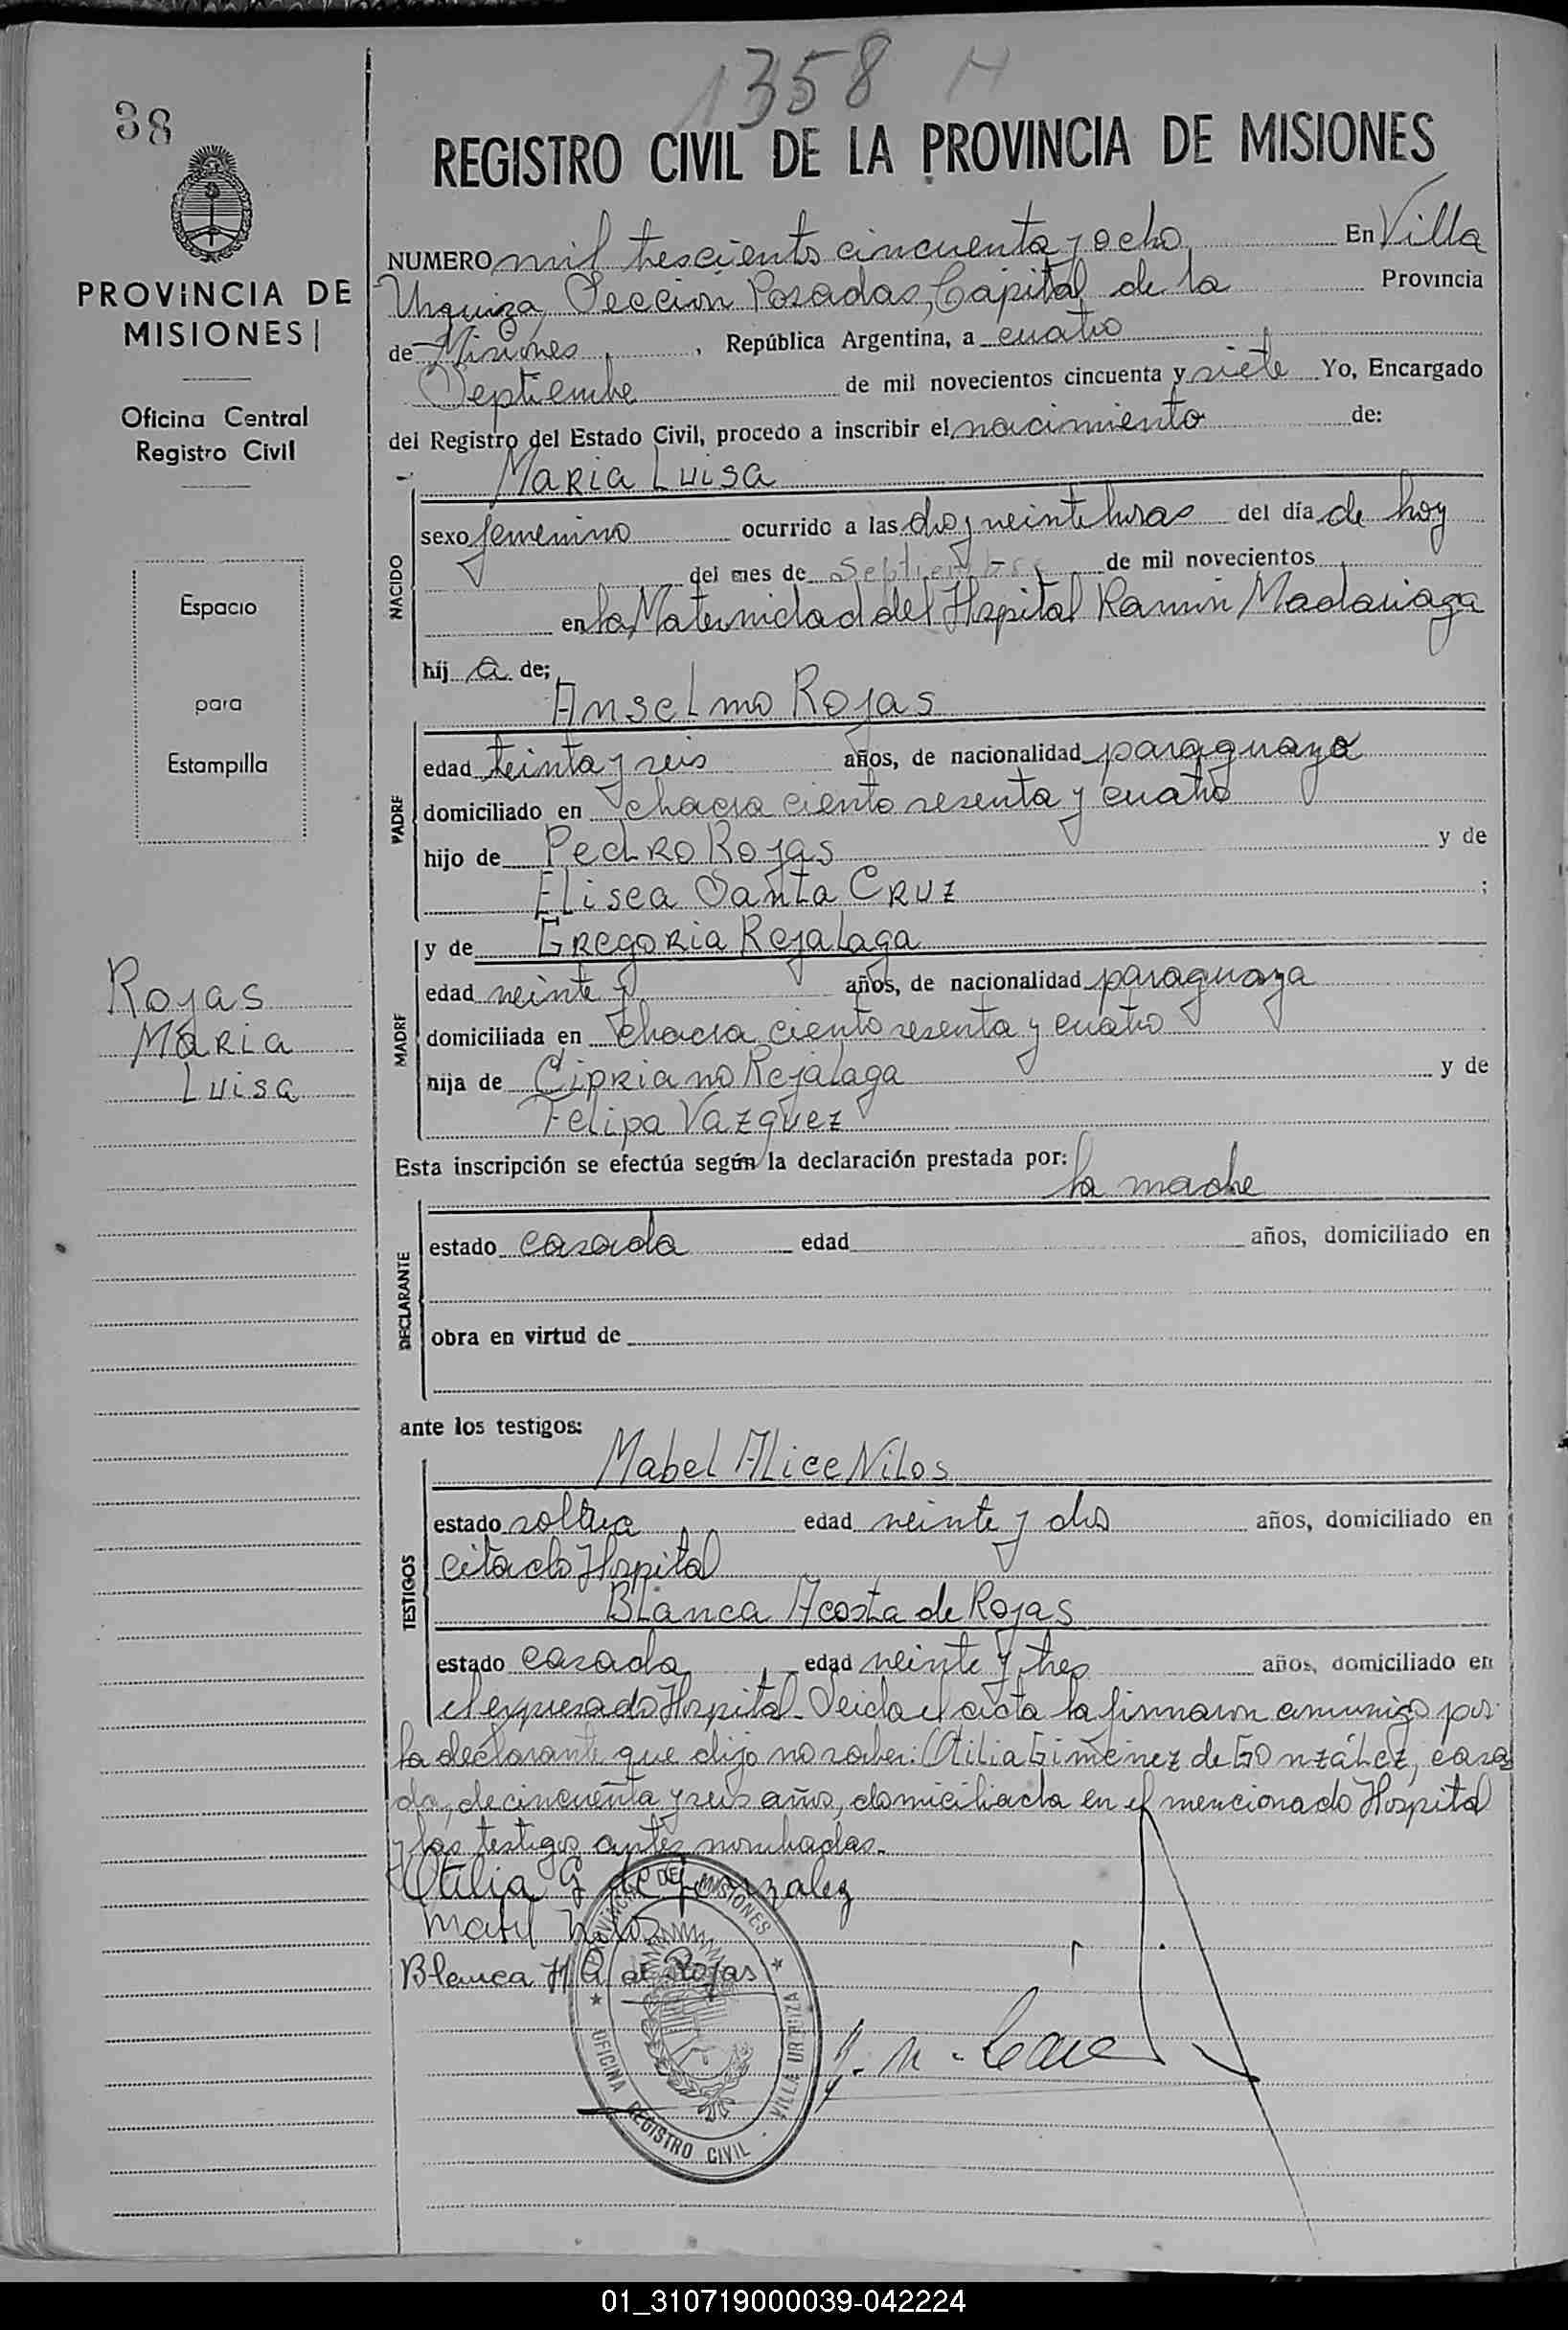 38
1358 H
REGISTRO CIVIL DE LA PROVINCIA DE MISIONES
PROVINCIA DE
MISIONES
Oficina Central
Registro Civil
Espacio
para
Estampilla
Rojas
Maria
Luisa
NUMERO mil trescientos cincuenta y ocho En Villa
Urquiza, Sección Posadas, Capital de la Provincia
de Misiones, República Argentina, a cuatro
Septiembre de mil novecientos cincuenta y siete Yo, Encargado
del Registro del Estado Civil, procedo a inscribir el nacimiento de:
Maria Luisa
NACIDO
sexo femenino ocurrido a las dos y veinte horas del día de hoy
del mes de Septiembre de mil novecientos
en la Maternidad del Hospital Ramón Madariaga
hij a de;
Anselmo Rojas
PADRE
edad treinta y seis años, de nacionalidad paraguaya
domiciliado en chacra ciento sesenta y cuatro
hijo de Pedro Rojas y de
Elisea Santa Cruz ;
y de Gregoria Rejalaga
MADRE
edad veinte y años, de nacionalidad paraguaya
domiciliada en chacra ciento sesenta y cuatro
hija de Cipriano Rejalaga y de
Felipa Vazquez
Esta inscripción se efectúa según la declaración prestada por:
la madre
DECLARANTE
estado casada edad años, domiciliado en
obra en virtud de
ante los testigos:
Mabel Alice Nilos
TESTIGOS
estado soltera edad veinte y dos años, domiciliado en
citado Hospital
Blanca Acosta de Rojas
estado casada edad veinte y tres años, domiciliado en
el expresado Hospital. Leida el acta la firmaron conmigo por
la declarante que dijo no saber: Otilia Giménez de González, casa
da, de cincuenta y seis años, domiciliada en el mencionado Hospital
y los testigos antes nombradas.
Otilia G de Gonzalez
Mabel Nilos
Blanca H A de Rojas
PROVINCIA DE MISIONES
OFICINA REGISTRO CIVIL - VILLA URQUIZA
01_310719000039-042224